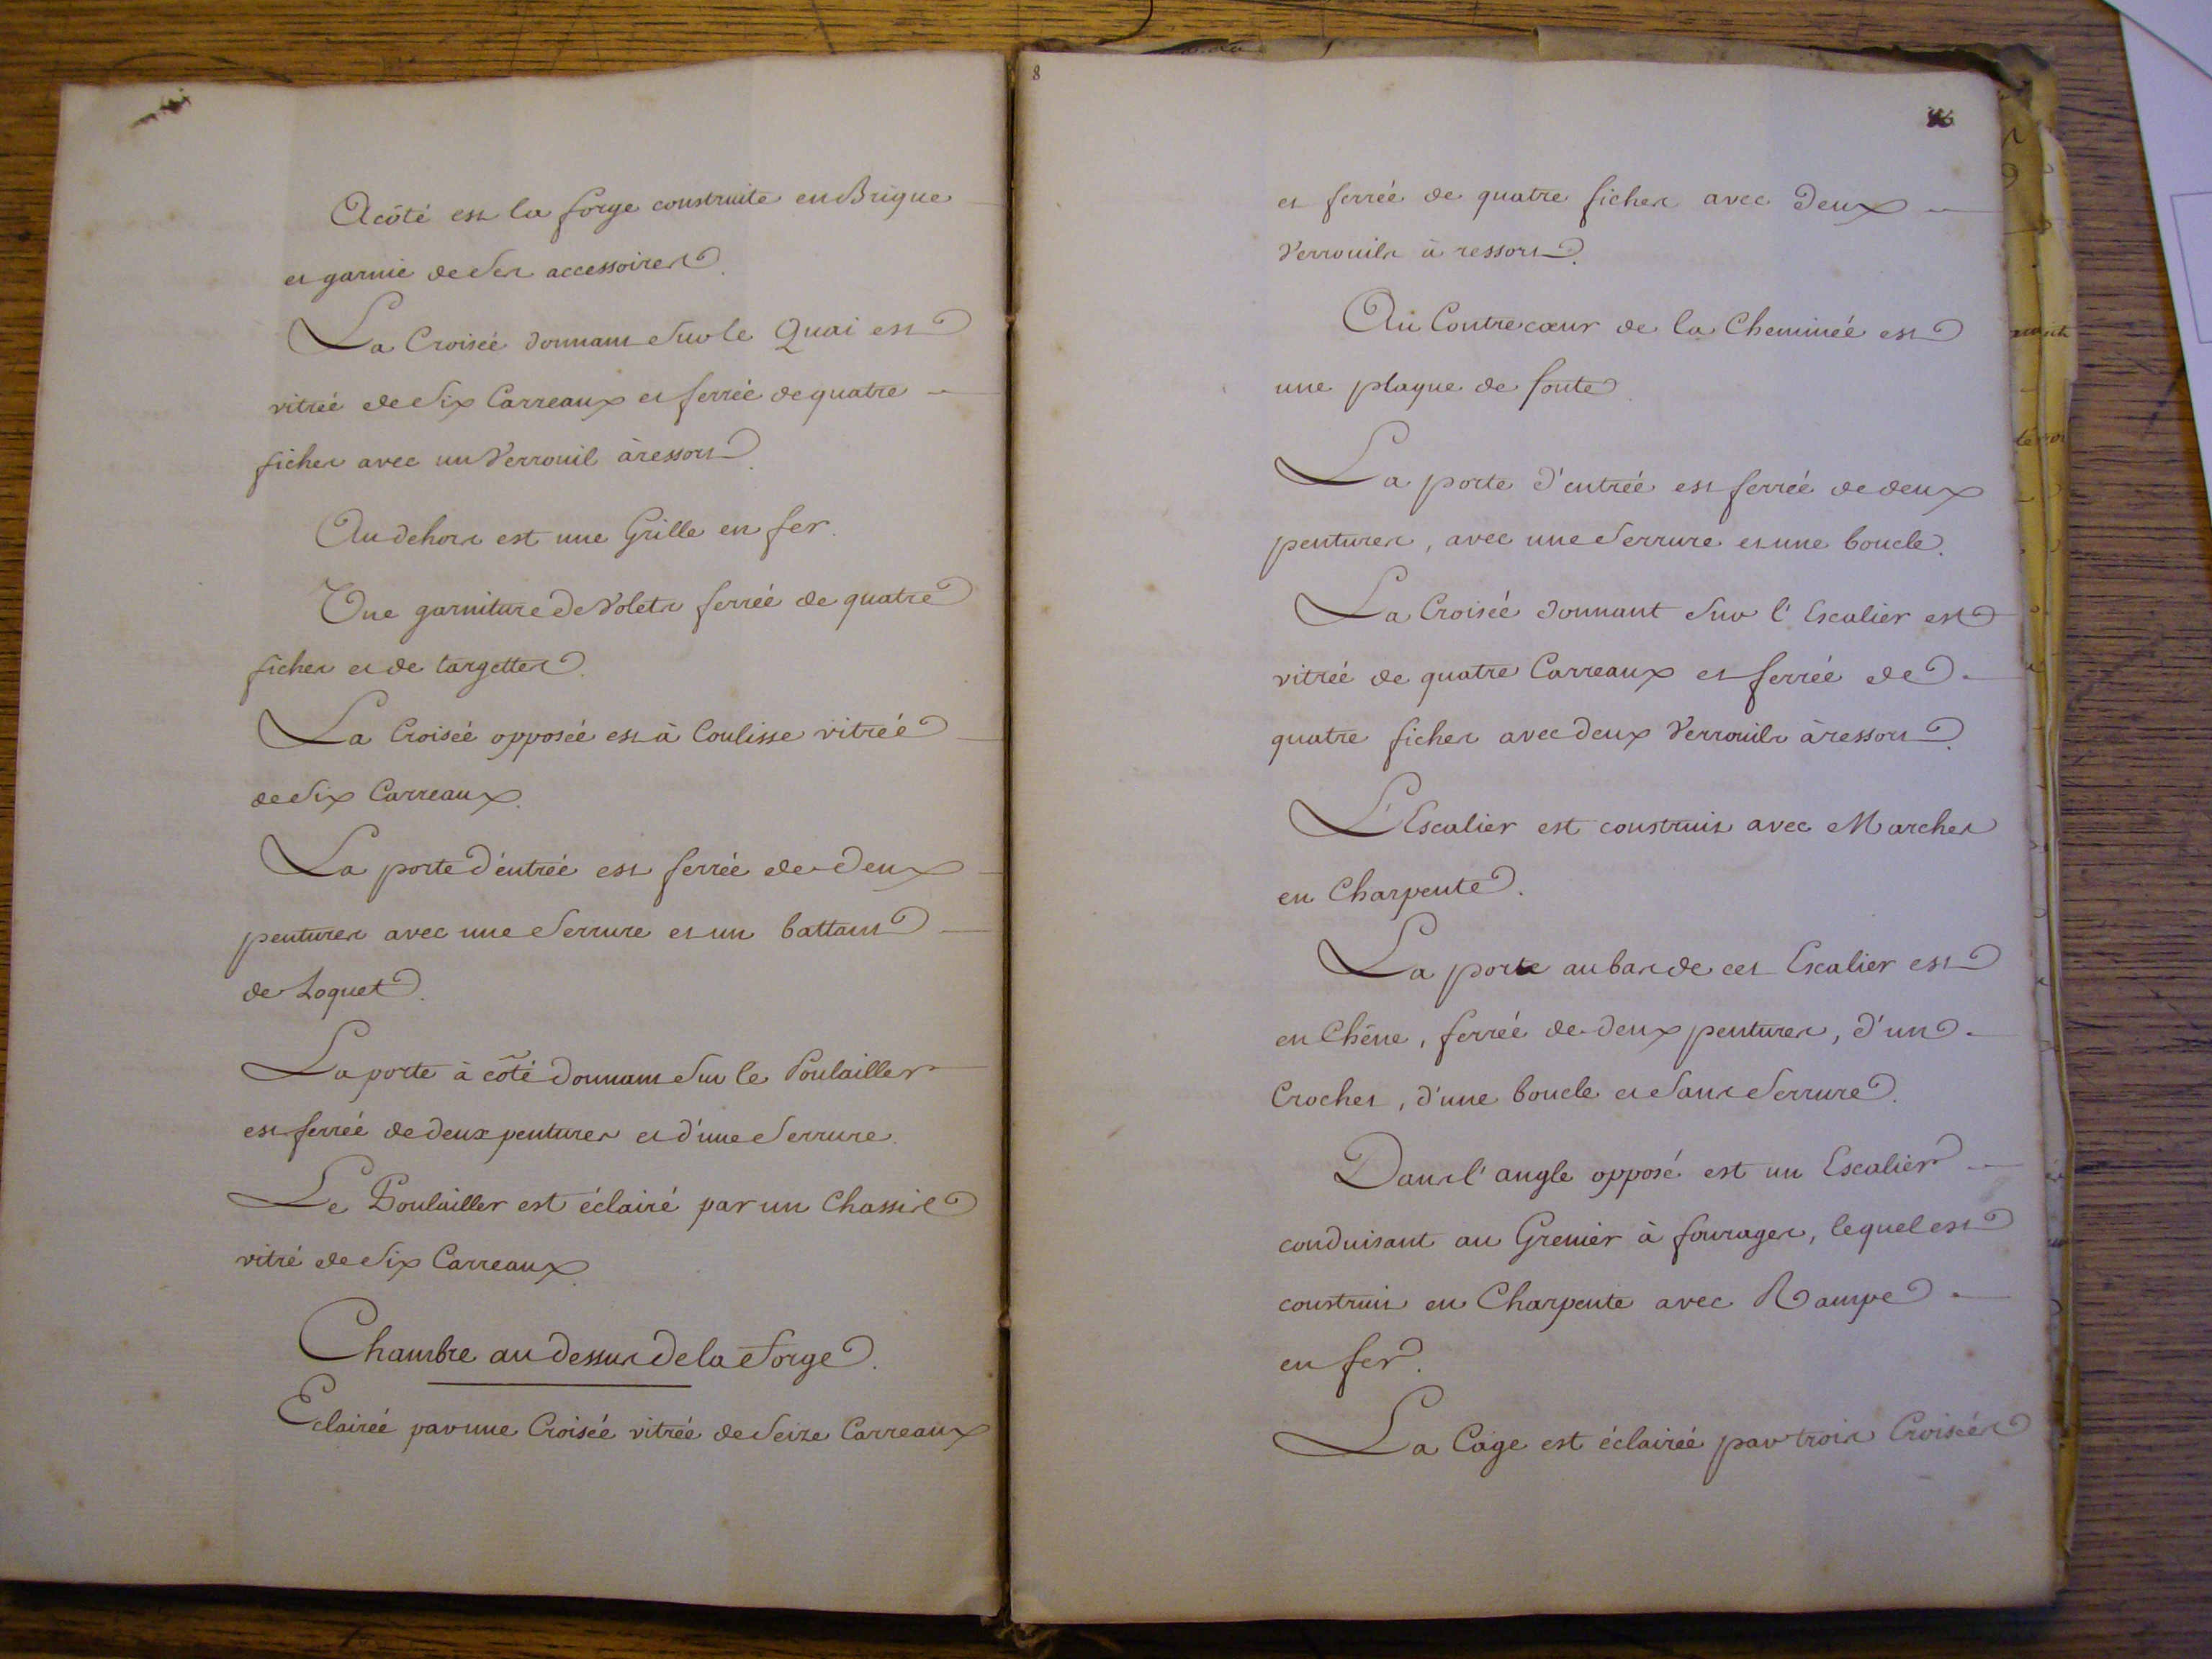 A côté est la forge construite en Brique
et garnie de Ses accessoires.
La Croisée donnant Sur le Quai est
vitrée de Six Carreaux et ferrée de quatre
fiches avec un Verrouil à ressort.
Au dehors est une Grille en fer.
Une garniture de Volets ferrée de quatre
fiches et de targettes.
La Croisée opposée est à Coulisse vitrée
de Six Carreaux.
La porte d'entrée est ferrée de deux
pentures avec une Serrure et un battant
de Loquet.
La porte à côté donnant Sur le Poulailler
est ferrée de deux pentures et d'une Serrure.
Le Poulailler est éclairé par un Chassis
vitré de Six Carreaux.
Chambre au dessus de la Forge.
Eclairée par une Croisée vitrée de Seize Carreaux
8
et ferrée de quatre fiches avec deux
Verrouils à ressort.
Au Contrecœur de la Cheminée est
une plaque de fonte.
La porte d'entrée est ferrée de deux
pentures, avec une Serrure et une boucle.
La Croisée donnant Sur l'Escalier est
vitrée de quatre Carreaux et ferrée de
quatre fiches avec deux Verrouils à ressort.
L'Escalier est construit avec Marches
en Charpente.
La porte au bas de cet Escalier est
en Chêne, ferrée de deux pentures, d'un
Crochet, d'une boucle et Sans Serrure.
Dans l'angle opposé est un Escalier
conduisant au Grenier à fourages, lequel est
construit en Charpente avec Rampe
en fer.
La Cage est éclairée par trois Croisées